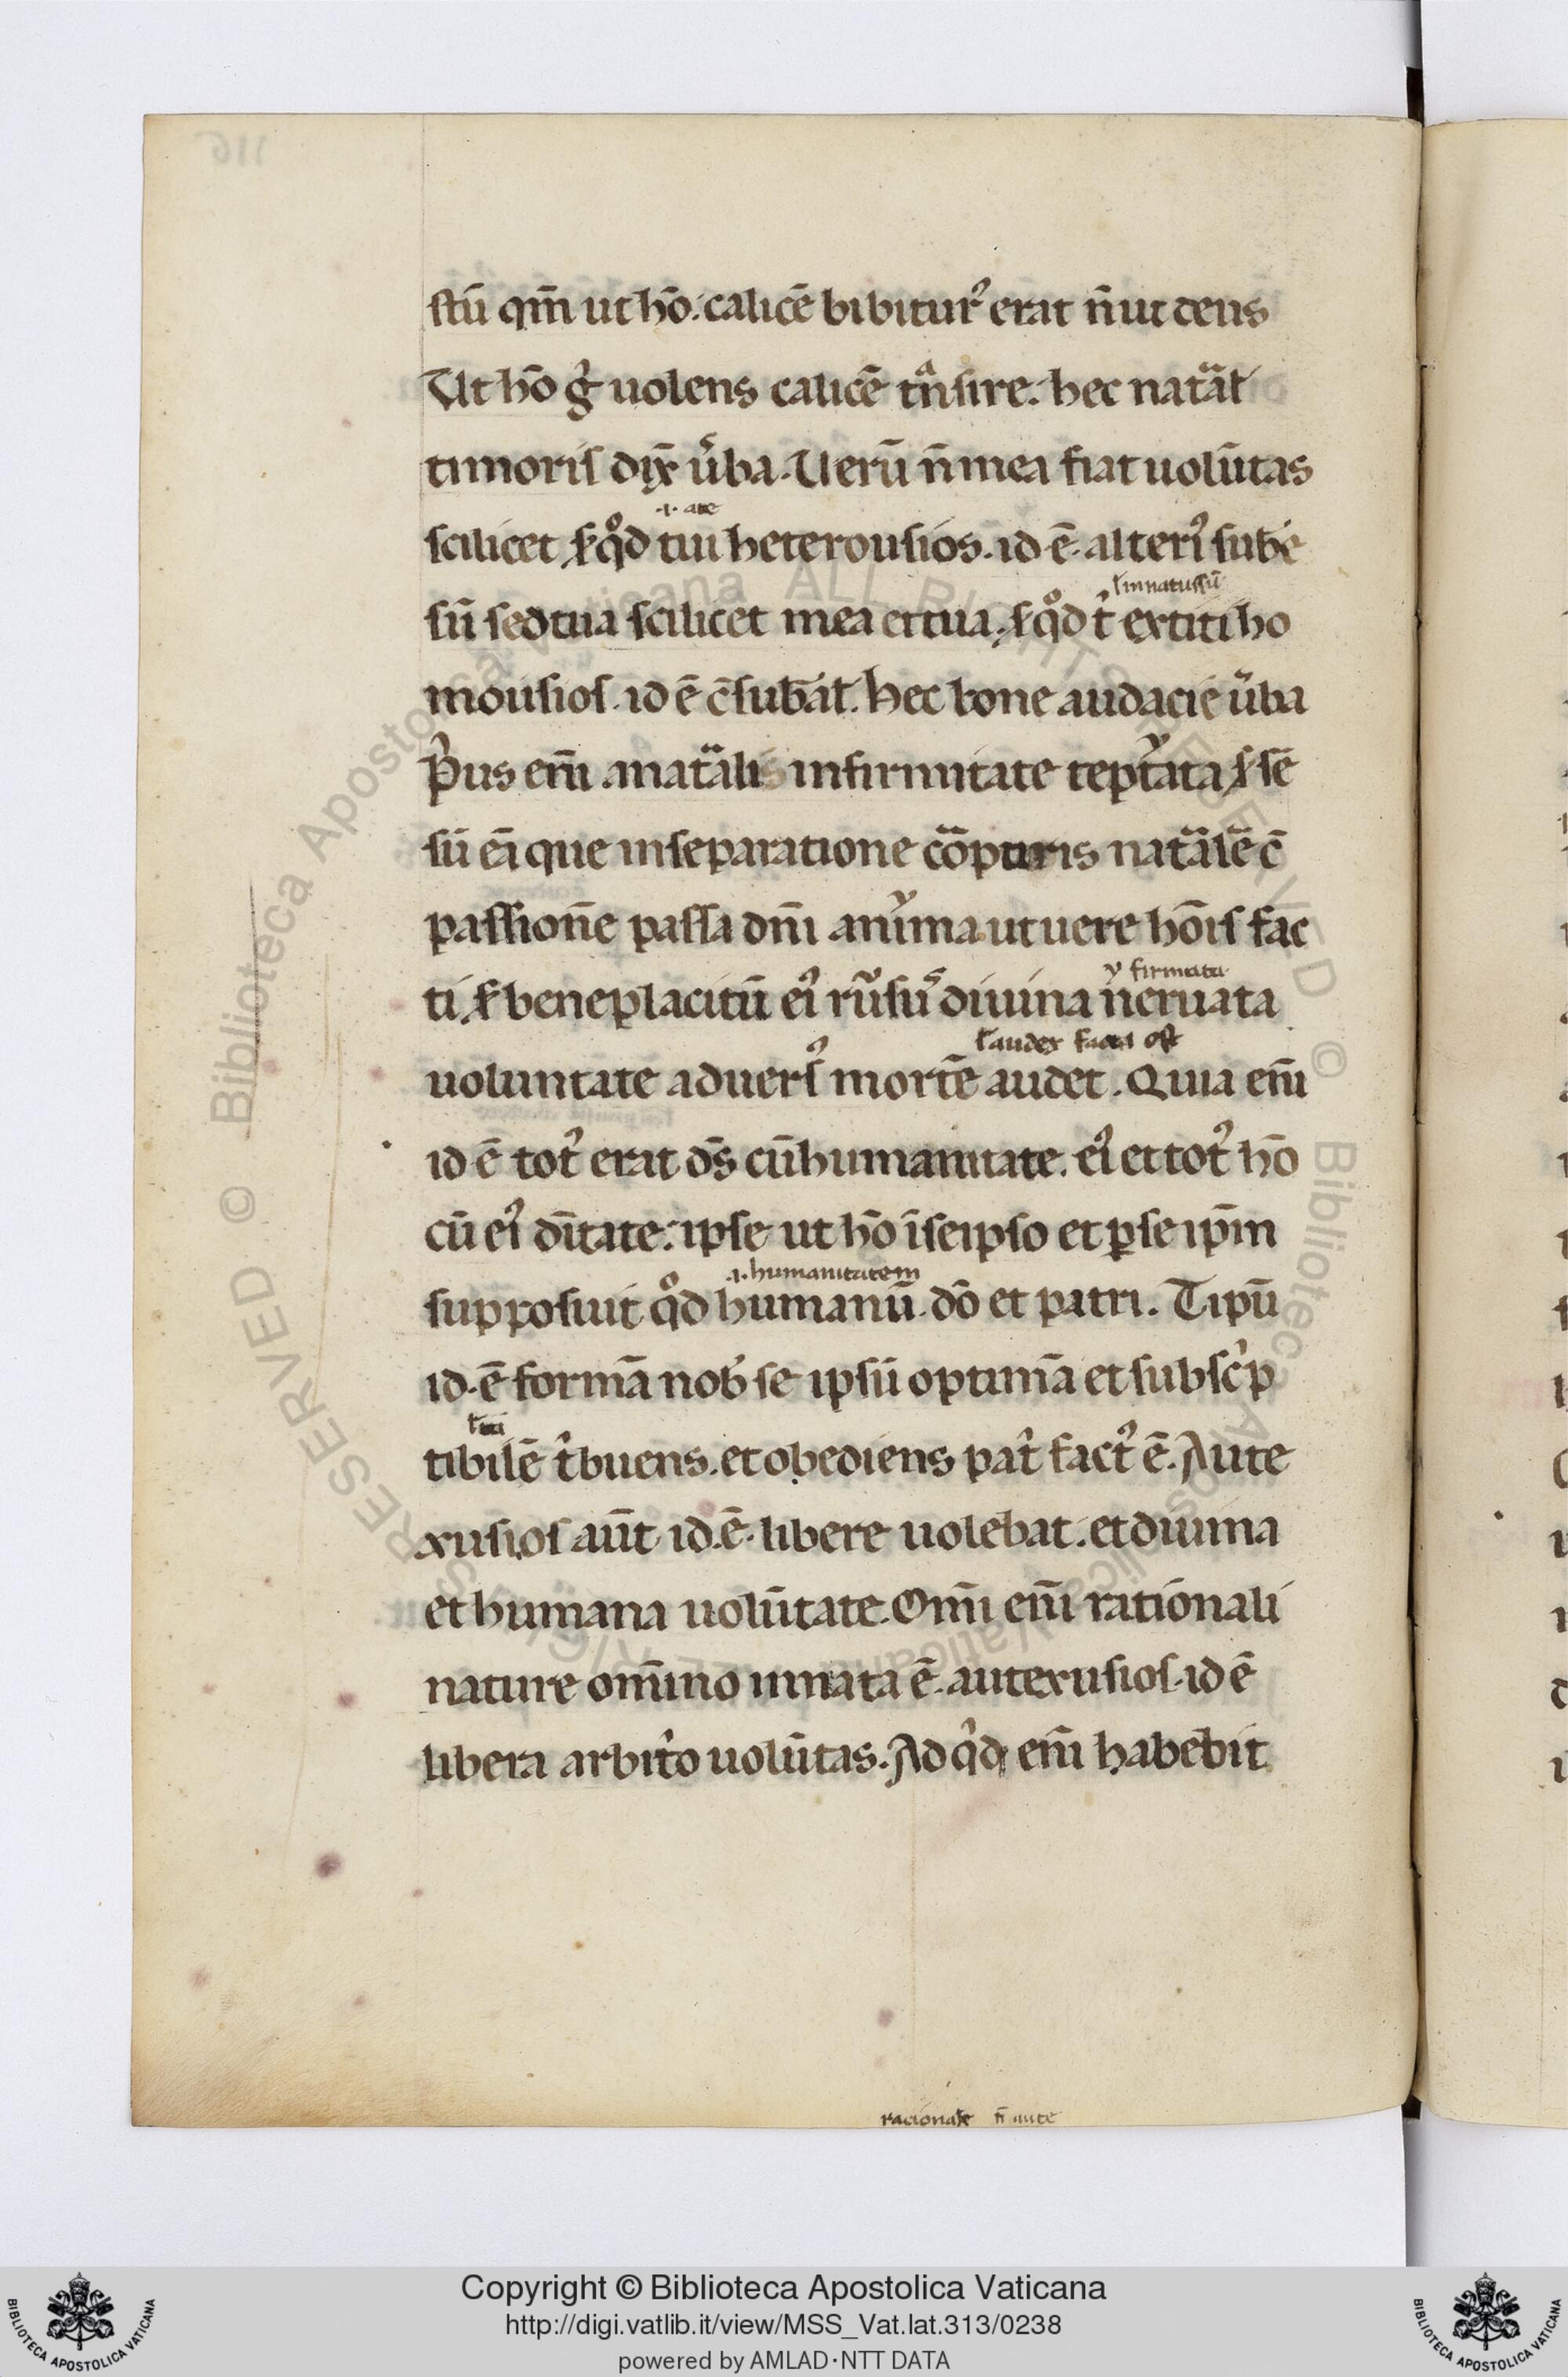 stū qm̄ ut hō. calicē bibitur᾽ erat n̄ ut deus
Ut hō g̊ uolens calicē tn̄sire. hec nat̄al
timoris dix̄ ūba. Uerū n̄ mea fiat uolūtas
.i. a te
scilicet ſ qͦd tui heterousios. id ē alteri᾽ sube
l innatus sū
sū sed tua scilicet mea et tua. ſ qͦd t̄ extiti ho
mousios. id ē c̄subāl. hec bone audacie ūba
p̄us em̄ a nat̄ali infirmitate teptata ſ sē
sū ei que in separatione cōpturis nat̄al sē c̄
passione passa dn̄i anima ut uere hōis fac
firmata
ti ſ beneplacitū ei᾽ rūsu᾽ diuina neruata
l audex facta est
uoluntate aduers᾽ mortē audet. Quia em̄
id ē tot᾽ erat dс̄ cū humanitate. ei᾽ et tot᾽ hō
cū ei᾽ dītate. ipse ut hō ī seipso et p se ip̄m
.i. humanitatem
supposuit qͦd humanū dō et patri. Tipū
id. ē formā nob᾽ se ipsū optimā et subsc̄p
tibilē t̄buens. et obediens pat̄ fact᾽ ē. Aute
xusios aūt id. ē. libere uolebat. et diuina
et humana uolūtate. Om̄i em̄ rationali
nature om̄ino innata ē. autexusios. id ē
libera arbit̄o uolūtas. Ad q̄d em̄ habebit
racionale n̄ aute
Copyright © Biblioteca Apostolica Vaticana
http://digi.vatlib.it/view/MSS_Vat.lat.313/0238
powered by AMLAD·NTT DATA